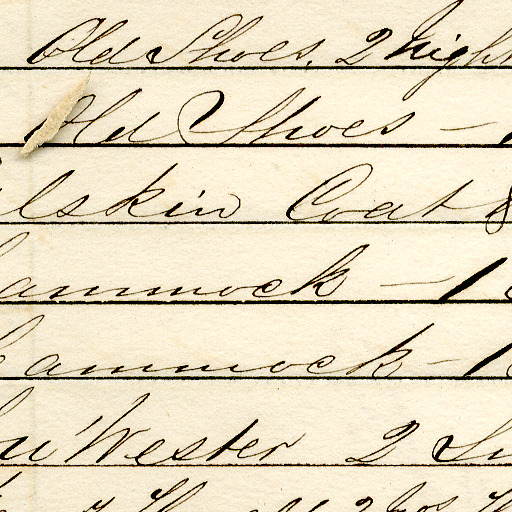 Old Shoes, 2 Nigh
Old Shoes — 
lskin Coat &
ammock — 1
ammock — 1
Sou'Wester 2 Su